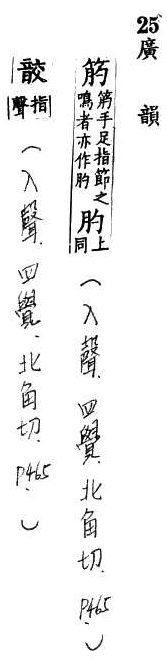 25 廣韻
筋 筋手足指節之鳴者亦作肑 肑 上同 (入聲.四覺.北角切.P465.)
骹 指聲 (入聲.四覺.北角切.P465.)